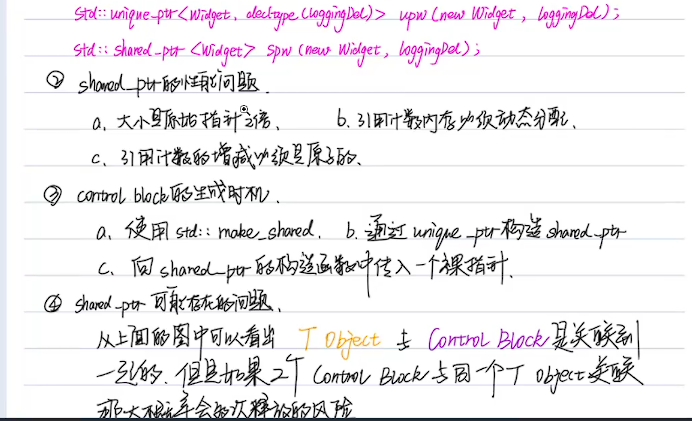 std::unique_ptr<Widget, decltype(loggingDel)> upw(new Widget, loggingDel);
std::shared_ptr<Widget> spw(new Widget, loggingDel);
② shared_ptr的性能问题.
a. 大小是原始指针2倍. b. 引用计数内存必须动态分配.
c. 引用计数的增减必须是原子的.
③ control block的生成时机.
a. 使用std::make_shared. b. 通过unique_ptr构造shared_ptr
c. 向shared_ptr的构造函数中传入一个裸指针.
④ shared_ptr可能存在的问题.
从上面的图中可以看出 T Object 与 Control Block是关联到
一起的. 但是如果2个Control Block与同一个T Object关联
那大概率会多次释放的风险